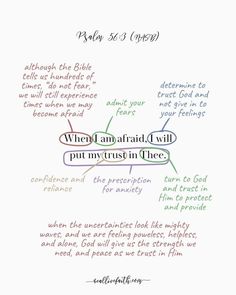 Psalm 56:3 (NASB)
although the Bible
tells us hundreds of
times, "do not fear,"
we will still experience
times when we may
become afraid
admit your
fears
determine to
trust God and
not give in to
your feelings
When I am afraid, I will
put my trust in Thee.
confidence and
reliance
the prescription
for anxiety
turn to God
and trust in
Him to protect
and provide
when the uncertainties look like mighty
waves, and we are feeling poweless, helpless,
and alone, God will give us the strength we
need, and peace as we trust in Him